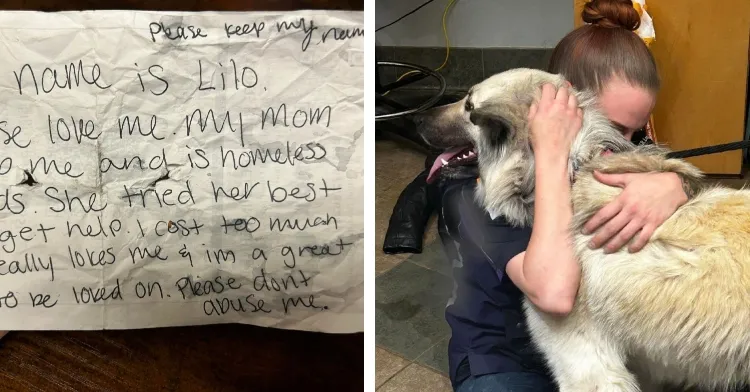 Please keep my nam
name is Lilo.
se love me. My Mom
me and is homeless
ds. She tried her best
get help. I cost too much
eally loves me & im a great
o be loved on. Please dont
abuse me.